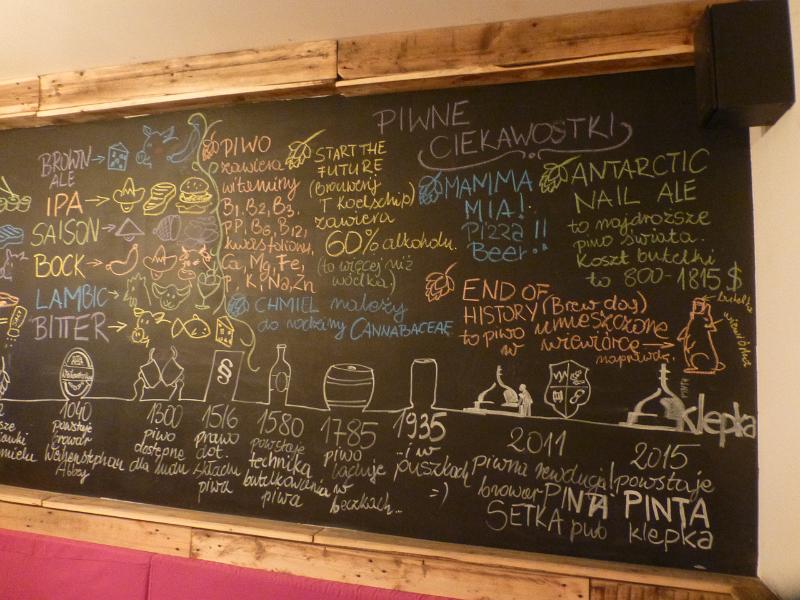 PIWNE
CIEKAWOSTKI
BROWN
ALE
IPA
SAISON
BOCK
LAMBIC
BITTER
PIWO
zawiera
witaminy
B1, B2, B3,
PP, B6, B12,
kwas foliowy,
Ca, Mg, Fe,
P, K, Na, Zn
START THE
FUTURE
(Brouwerij
T Koelschip)
zawiera
60% alkoholu.
(to więcej niż
wódka)
CHMIEL należy
do rodziny CANNABACEAE
MAMMA
MIA!
Pizza
Beer!!
ANTARCTIC
NAIL ALE
to najdroższe
piwo świata.
Koszt butelki
to 800-1815$
END OF
HISTORY (Brew dog)
to piwo umieszczone
w wiewiórce
naprawdę.
butelka
wiewiórka
1040
powstaje
browar
Weihenstephan
Abbey
1300
piwo
dostępne
dla ludu
1516
prawo
dot.
składu
piwa
§
1580
powstaje
technika
butelkowania
piwa
1785
piwo
ląduje
w
beczkach...
1935
...i w
puszkach
:)
2011
piwna rewolucja!
browar PINTA
SETKA pub
2015
powstaje
PINTA
klepka
klepka